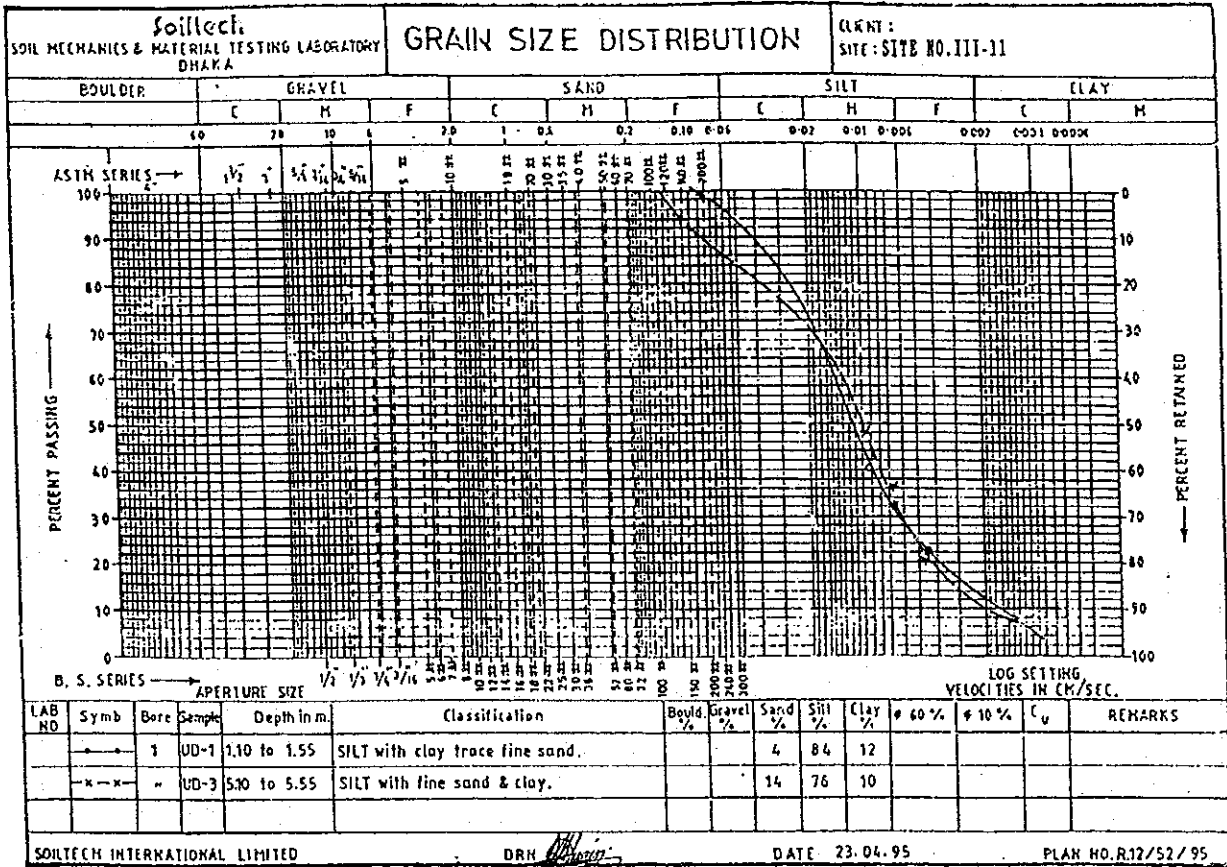 Soiltech
SOIL MECHANICS & MATERIAL TESTING LABORATORY
DHAKA
GRAIN SIZE DISTRIBUTION
CLIENT :
SITE : SITE NO.III-11
BOULDER GRAVEL SAND SILT CLAY
C M F C M F C M F C M
60 20 10 6 2.0 1 0.5 0.2 0.10 0.06 0.02 0.01 0.006 0.002 0.001 0.0006
ASTM SERIES
4" 1½" 1" 5 10 20 30 35 40 50 70 100 120 140 200
100 0
90 10
80 20
70 30
60 40
50 50
40 60
30 70
20 80
10 90
0 100
PERCENT PASSING
PERCENT RETAINED
B. S. SERIES
1/2" 3/16" 5 6 7 10 12 14 16 18 22 25 30 36 52 60 72 100 150 200 240 300
APERTURE SIZE
LOG SETTING
VELOCITIES IN CM/SEC.
LAB NO Symb Bore Sample Depth in m. Classification Bould. % Gravel % Sand % Silt % Clay % φ 60 % φ 10 % Cu REMARKS
1 UD-1 1.10 to 1.55 SILT with clay trace fine sand. 4 84 12
" UD-3 5.10 to 5.55 SILT with fine sand & clay. 14 76 10
SOILTECH INTERNATIONAL LIMITED DRN DATE 23.04.95 PLAN NO.R.12/52/95